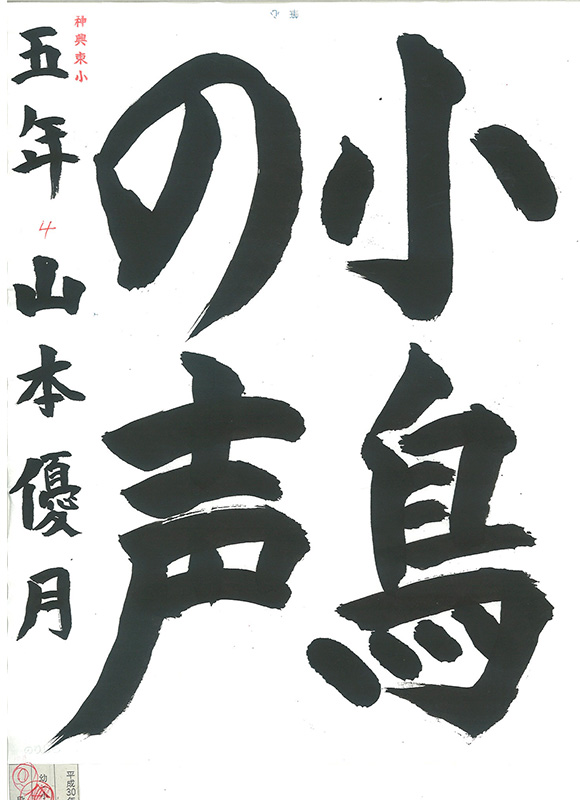 小鳥
の声
神興東小
五年 4 山本優月
筆心
平成30年
幼